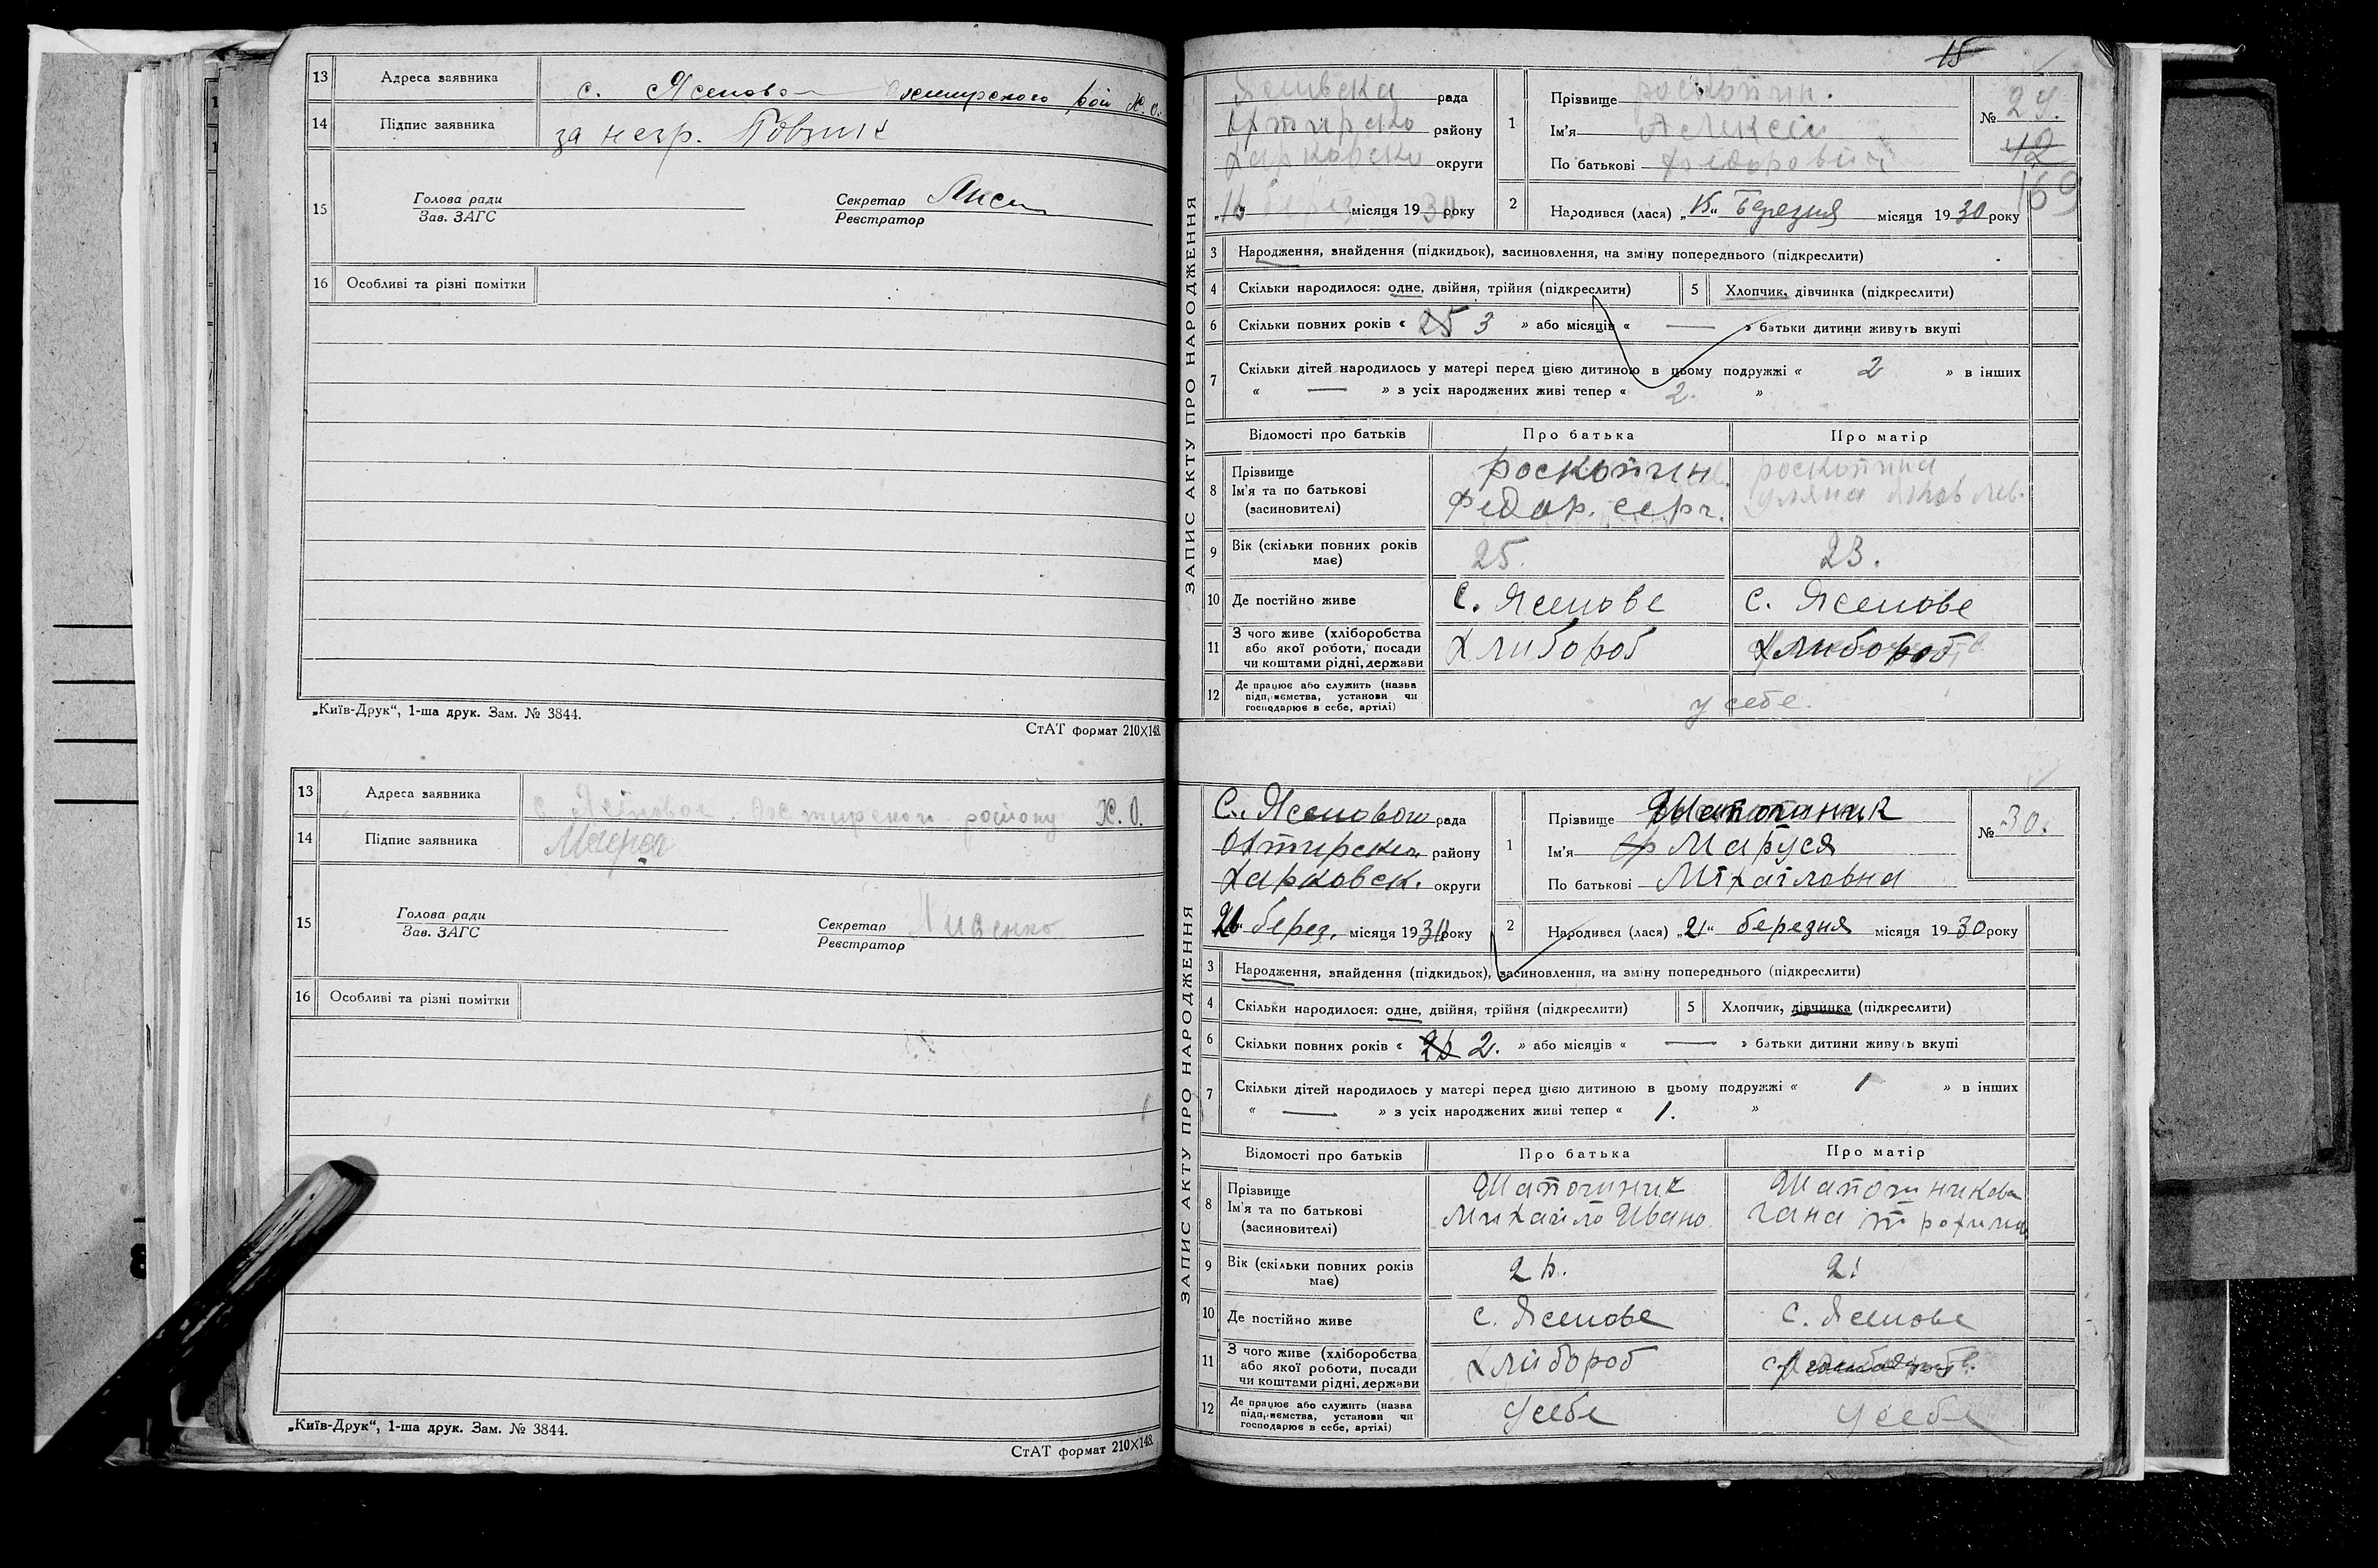 13 Адреса заявника с. Ясенова Охтирского рай Х. О.
14 Підпис заявника за негр. Говзик
15 Голова ради
Зав. ЗАГС
Секретар Лисен
Реєстратор
16 Особливі та різні помітки
„Київ-Друк“, 1-ша друк. Зам. № 3844.
СтАТ формат 210×148.
13 Адреса заявника с. Ясеновое району Х. О.
14 Підпис заявника
15 Голова ради
Зав. ЗАГС
Секретар Лисенко
Реєстратор
16 Особливі та різні помітки
„Київ-Друк“, 1-ша друк. Зам. № 3844.
СтАТ формат 210×148.
15
ЗАПИС АКТУ ПРО НАРОДЖЕННЯ
рада
району
Харковско округи
„16 берез місяця 1930 року
1 Прізвище роскопин.
Ім'я Аликсей
По батькові Федоровіч
№ 29.
42
169
2 Народився (лася) „15“ Березня місяця 1930 року
3 Народження, знайдення (підкидьок), засиновлення, на зміну попереднього (підкреслити)
4 Скільки народилося: одне, двійня, трійня (підкреслити) 5 Хлопчик, дівчинка (підкреслити)
6 Скільки повних років « 25 3 » або місяців « — » батьки дитини живуть вкупі
7 Скільки дітей народилось у матері перед цією дитиною в цьому подружжі « 2 » в інших
« — » з усіх народжених живі тепер « 2. »
Відомості про батьків Про батька Про матір
8 Прізвище роскопин роскопина
Ім'я та по батькові Федор. серг. уляна яковлев.
(засиновителі)
9 Вік (скільки повних років має) 25. 23.
10 Де постійно живе С. Ясенове С. Ясенове
11 З чого живе (хліборобства або якої роботи, посади чи коштами рідні, держави Хлибороб Хлибороб
12 Де працює або служить (назва підприємства, установи чи господарює в себе, артілі) у себе.
ЗАПИС АКТУ ПРО НАРОДЖЕННЯ
С. Ясеновом рада
Охтирским району
Харковск. округи
„21“ берез. місяця 1930 року
1 Прізвище Шапошник
Ім'я Маруся
По батькові Міхаіловна
№ 30.
2 Народився (лася) „21“ березня місяця 1930 року
3 Народження, знайдення (підкидьок), засиновлення, на зміну попереднього (підкреслити)
4 Скільки народилося: одне, двійня, трійня (підкреслити) 5 Хлопчик, дівчинка (підкреслити)
6 Скільки повних років « 2. » або місяців « — » батьки дитини живуть вкупі
7 Скільки дітей народилось у матері перед цією дитиною в цьому подружжі « 1 » в інших
« — » з усіх народжених живі тепер « 1. »
Відомості про батьків Про батька Про матір
8 Прізвище Шапошник Шапошникова
Ім'я та по батькові Михайло Ивано. гана трохимов
(засиновителі)
9 Вік (скільки повних років має) 21
10 Де постійно живе С. Ясенове С. Ясенове
11 З чого живе (хліборобства або якої роботи, посади чи коштами рідні, держави Хлибороб
12 Де працює або служить (назва підприємства, установи чи господарює в себе, артілі) Усебе Усебе